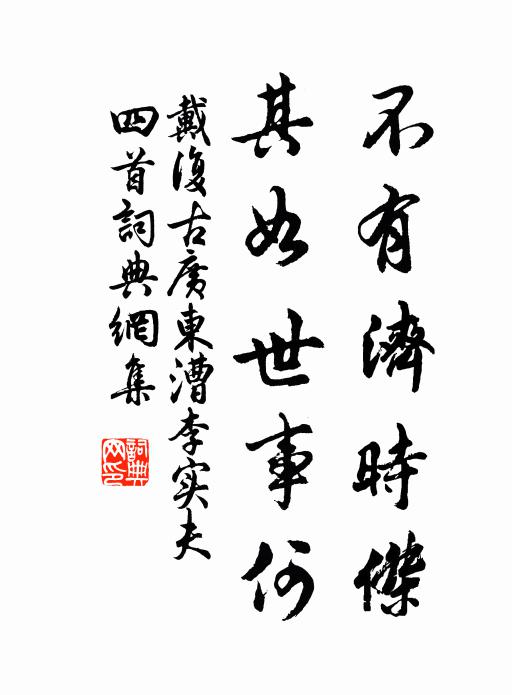 不有濟時傑
其如世事何
戴復古廣東漕李实夫
四首詞典網集
詞典網印